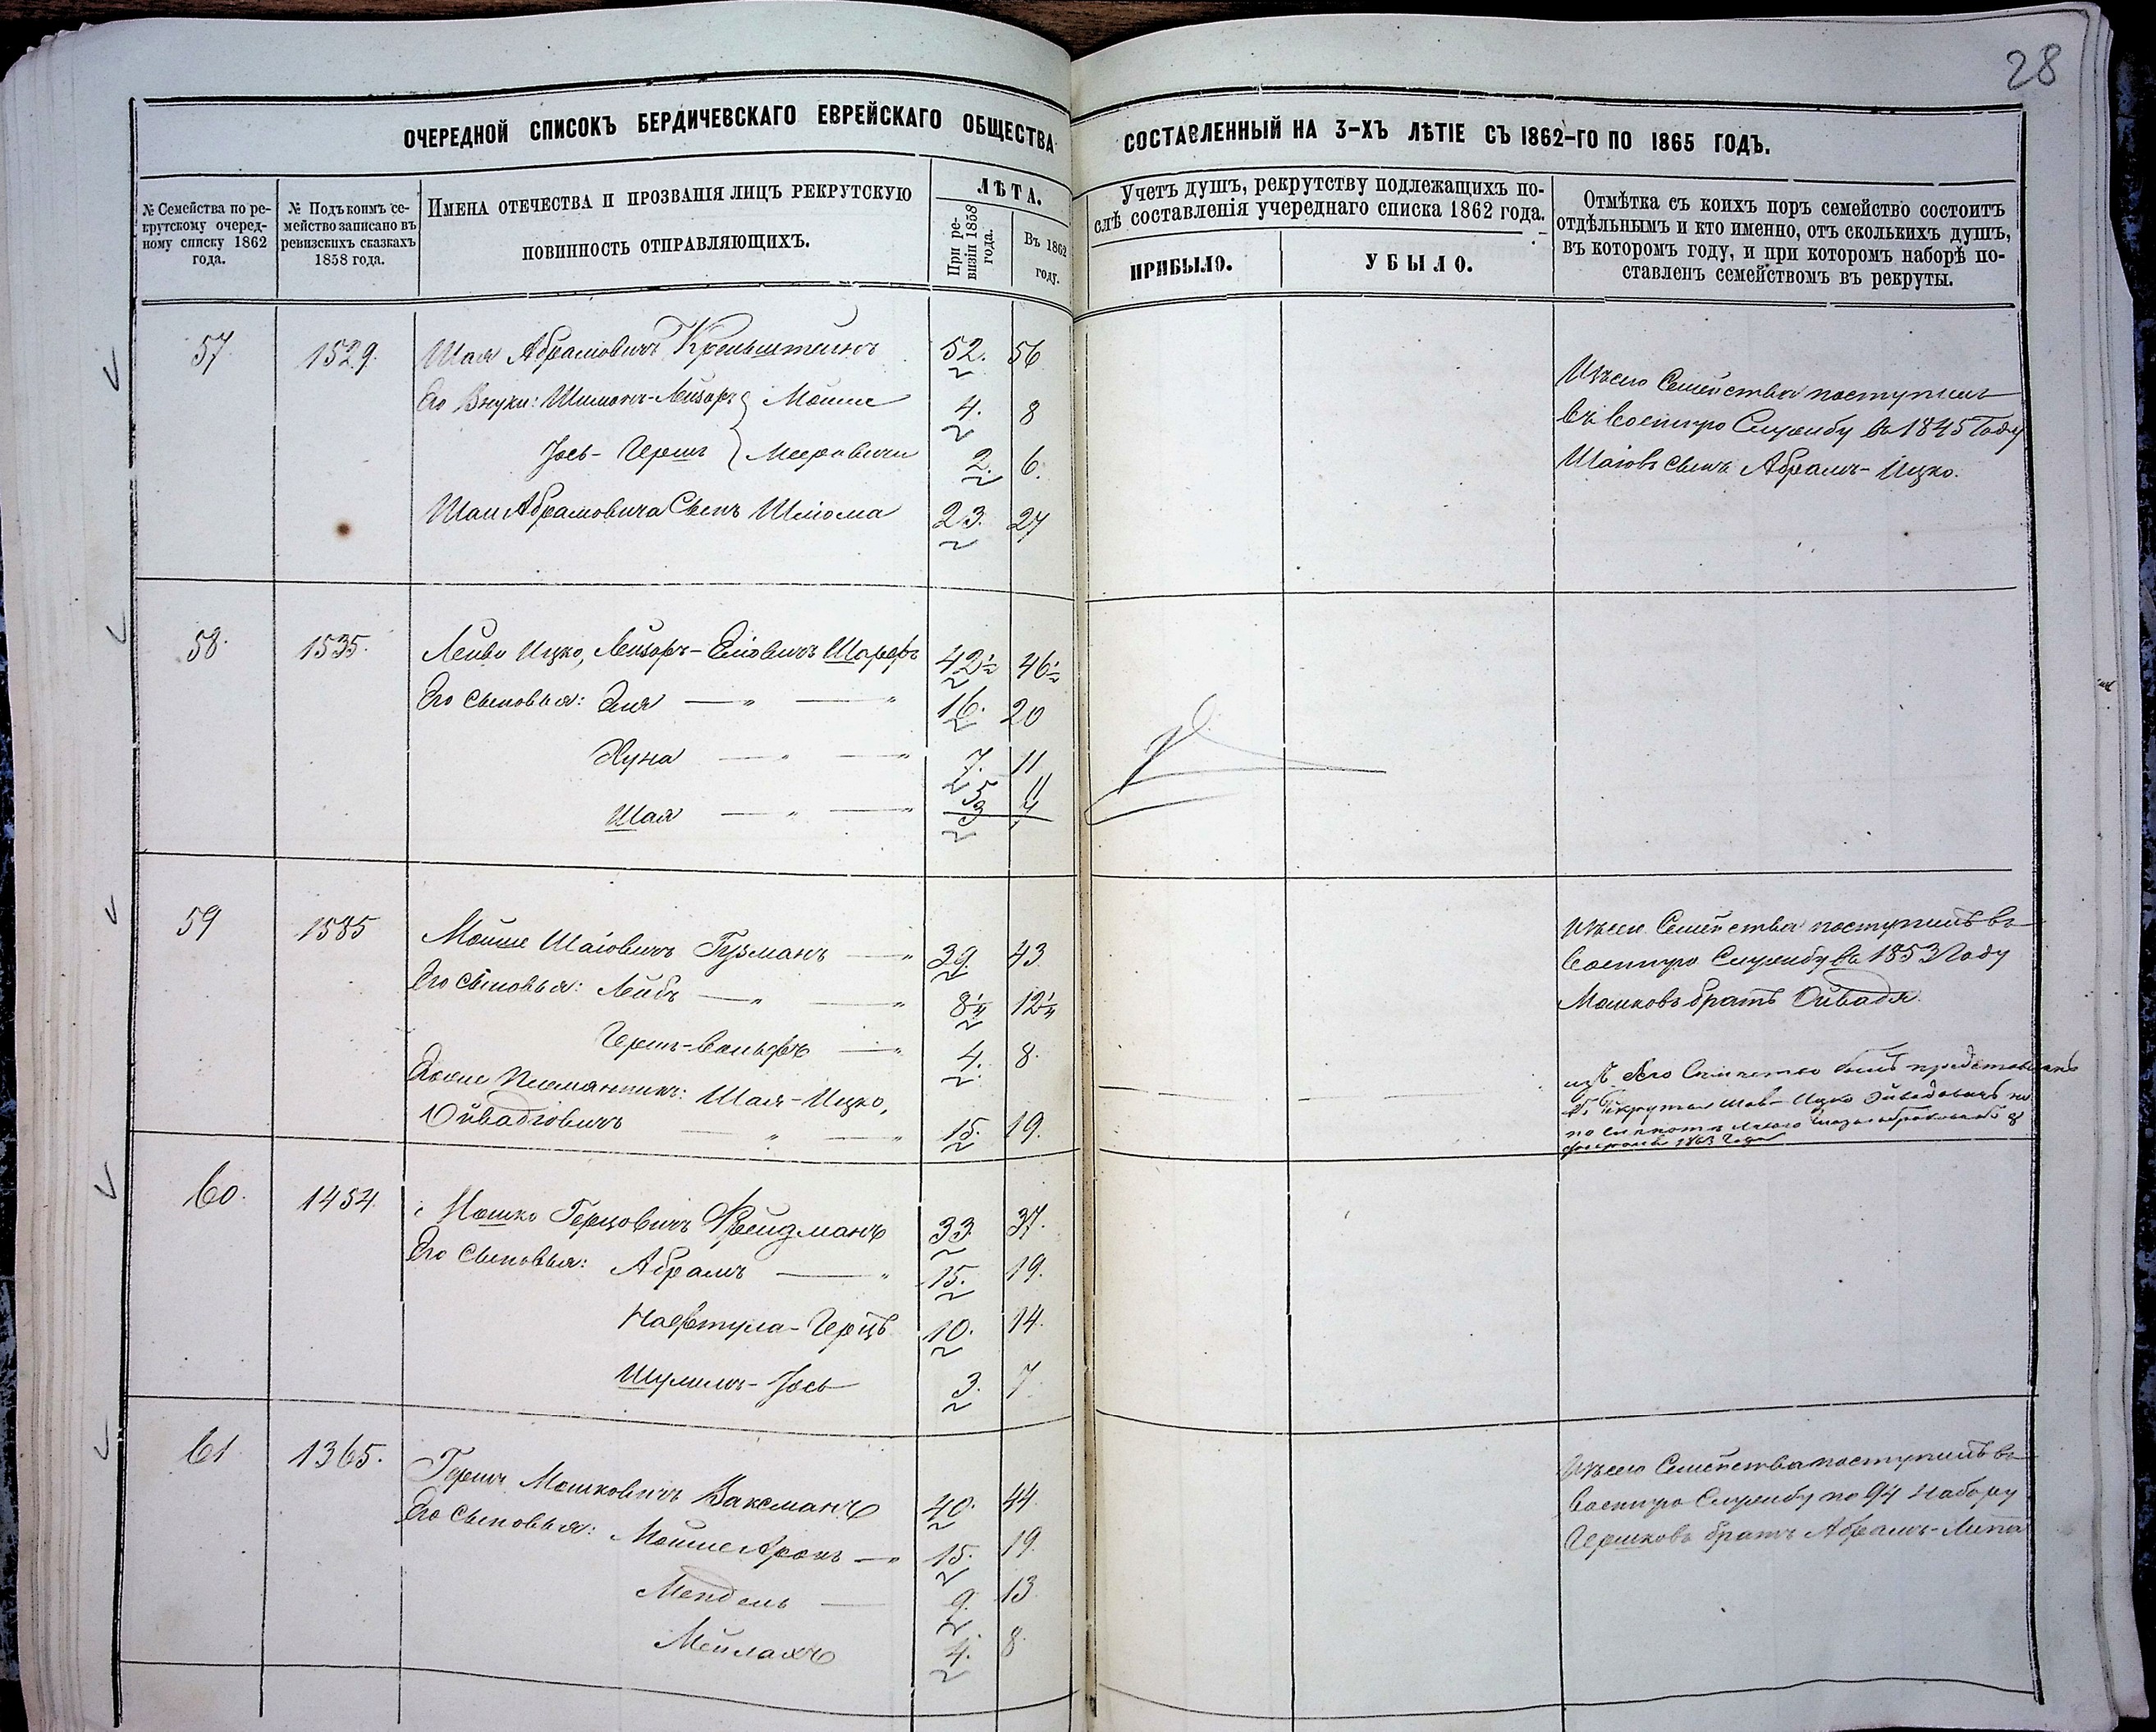 28
ОЧЕРЕДНОЙ СПИСОКЪ БЕРДИЧЕВСКАГО ЕВРЕЙСКАГО ОБЩЕСТВА
СОСТАВЛЕННЫЙ НА 3-ХЪ ЛѢТІЕ СЪ 1862-ГО ПО 1865 ГОДЪ.
№ Семейства по ре-
крутскому очеред-
ному списку 1862
года.
№ Подъ коимъ се-
мейство записано въ
ревизскихъ сказкахъ
1858 года.
ИМЕНА ОТЕЧЕСТВА И ПРОЗВАНІЯ ЛИЦЪ РЕКРУТСКУЮ
ПОВИННОСТЬ ОТПРАВЛЯЮЩИХЪ.
ЛѢТА.
При ре-
визіи 1858
года.
Въ 1862
году.
Учетъ душъ, рекрутству подлежащихъ по-
слѣ составленія учереднаго списка 1862 года.
ПРИБЫЛО.
УБЫЛО.
Отмѣтка съ коихъ поръ семейство состоитъ
отдѣльнымъ и кто именно, отъ сколькихъ душъ,
въ которомъ году, и при которомъ наборѣ по-
ставленъ семействомъ въ рекруты.
57 1529. Шая Абрамовичъ 52. 56
Его Внуки: Шимонъ-Лейзоръ } Мошке 4. 8
Іось-Гершъ } Мееровичи 2. 6.
Шаи Абрамовича Сынъ Шліома 23. 27
Изъ сего Семейства поступилъ
въ военную Службу въ 1845 Году
Шаіовъ сынъ Абрамъ-Ицко.
58. 1535. Лейви Ицко, Лейзоръ-Еліовичъ 42½ 46½
Его сыновья: Эля — " — " 16. 20
Хуна — " — " 7. 11
Шая — " — " 3 7
59 1585 Мошке Шаіовичъ Гузманъ — " 39. 43
Его сыновья: Лейбъ — " — " 8¼ 12¼
Гершъ-Вольфъ — " 4. 8.
Его же Племянникъ: Шая-Ицко,
Ойвадіовичъ — " — " 15. 19.
Изъ сего Семейства поступилъ въ
военную Службу въ 1853 Году
Мошковъ братъ Ойвадя.
изъ сего Семейства былъ представленъ
1863 года
60. 1454. Мошко Герцовичъ 33. 37.
Его сыновья: Абрамъ — " 15. 19.
Нафтула-Герцъ 10. 14.
Шулимъ-Іось 3. 7
61 1365. Гершъ Мошковичъ Ваксманъ 40. 44.
Его сыновья: Мошке Аронъ — " 15. 19.
Мендель — 9. 13
Мейлахъ 4. 8.
Изъ сего Семейства поступилъ въ
военную Службу по 94 Набору
Гершковъ братъ Абрамъ-Липа